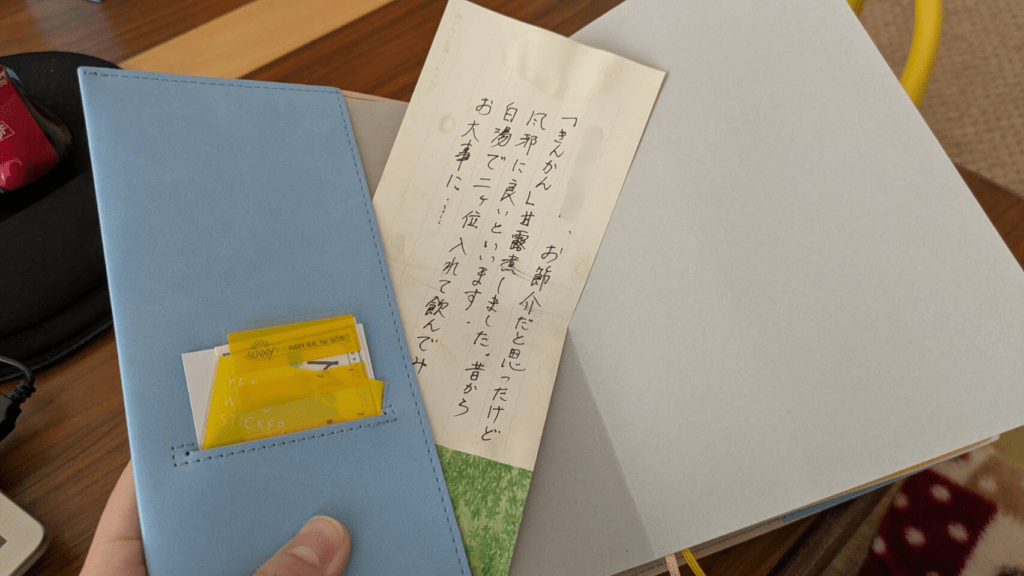 、お節介だと思ったけど
「きんかん」甘露煮しました。昔から
風邪に良いといいます.
白湯で二ヶ位入れて飲んでみ
お大事に……
SUNNY
STICKER